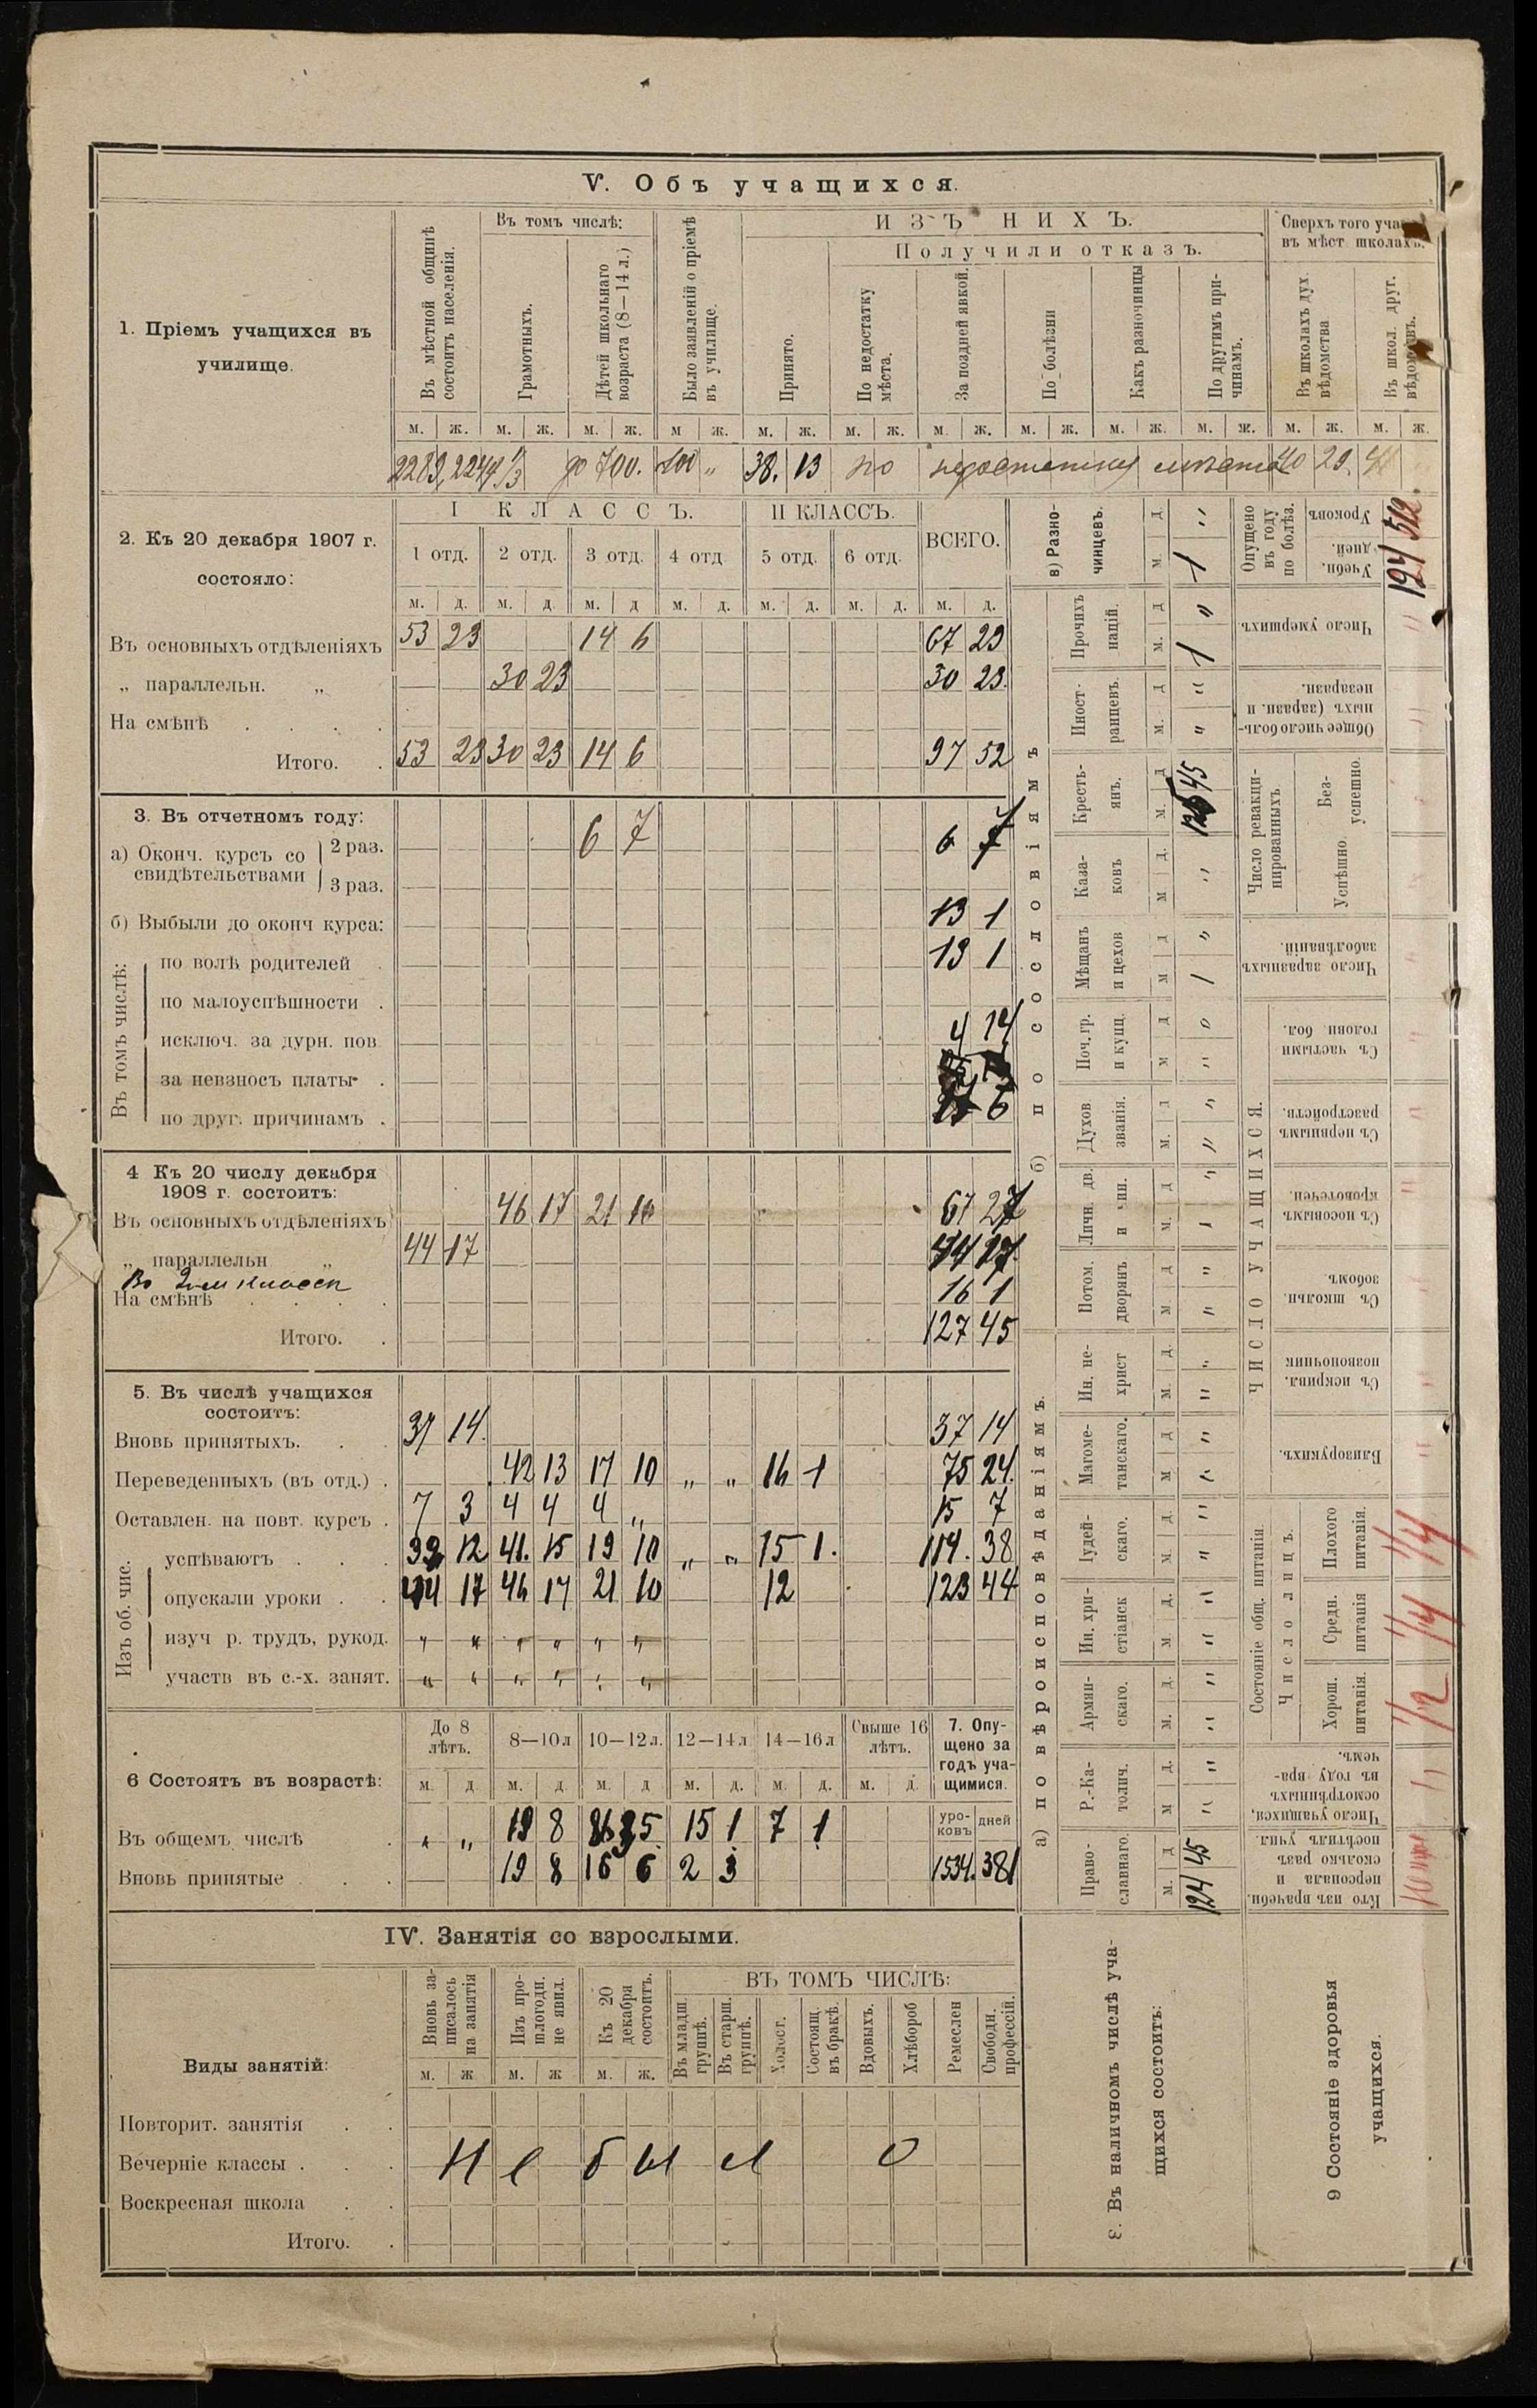 V. Объ учащихся.
1. Пріемъ учащихся въ
училище.
Въ мѣстной общинѣ
состоитъ населенія.
Въ томъ числѣ:
Грамотныхъ.
Дѣтей школьнаго
возраста (8—14 л.)
Было заявленій о пріемѣ
въ училище.
ИЗЪ НИХЪ.
Принято.
Получили отказъ.
По недостатку
мѣста.
За поздней явкой.
По болѣзни
Какъ разночинцы
По другимъ при-
чинамъ.
Сверхъ того
въ мѣст школахъ.
Въ школахъ дух
вѣдомства
Въ школ. друг.
вѣдомствъ.
м. ж. м. ж. м. ж. м ж. м. ж. м. ж. м ж. м. ж. м. ж. м. ж. м. ж. м. ж.
2289, 2244 1/3 до 700. 100 „ 38. 13 по недостатку мѣста 40 29.
2. Къ 20 декабря 1907 г.
состояло:
I КЛАССЪ. II КЛАССЪ. ВСЕГО.
1 отд. 2 отд. 3 отд. 4 отд 5 отд. 6 отд.
м. д. м. д м. д м. д. м. д. м. д. м. д.
Въ основныхъ отдѣленіяхъ 53 23 14 6 67 29
„ параллельн. „ 30 23 30 23.
На смѣнѣ
Итого. 53 23 30 23 14 6 97 52
3. Въ отчетномъ году:
а) Оконч. курсъ со
свидѣтельствами
2 раз. 6 7 6 7
3 раз.
б) Выбыли до оконч курса: 13 1
Въ томъ числѣ:
по волѣ родителей 13 1
по малоуспѣшности
исключ. за дурн. пов 4 14
за невзносъ платы
по друг. причинамъ
4 Къ 20 числу декабря
1908 г. состоитъ:
Въ основныхъ отдѣленіяхъ 46 17 21 10 67 27
„ параллельн „ 44 17 44 17
Во 2-мъ классѣ
На смѣнѣ 16 1
Итого. 127 45
5. Въ числѣ учащихся
состоитъ:
Вновь принятыхъ. 37 14. 37 14
Переведенныхъ (въ отд.) 42 13 17 10 „ „ 16 1 75 24.
Оставлен. на повт. курсъ 7 3 4 4 4 „ 15 7
Изъ об. чис.
успѣваютъ 39 12 41. 15 19 10 „ „ 15 1. 114. 38
опускали уроки 44 17 46 17 21 10 12 123 44
изуч р. трудъ, рукод. „ „ „ „ „ „
участв въ с.-х. занят. „ „ „ „ „ „
6 Состоятъ въ возрастѣ:
До 8
лѣтъ.
8—10 л 10—12 л. 12—14 л 14—16 л
Свыше 16
лѣтъ.
7. Опу-
щено за
годъ уча-
щимися.
м. д м. д м. д м. д. м. д. м. д.
уро-
ковъ
дней
Въ общемъ числѣ „ „ 19 8 86 35 15 1 7 1
Вновь принятые 19 8 16 6 2 3 1534. 381
IV. Занятія со взрослыми.
Виды занятій:
Вновь за-
писалось
на занятія
Изъ про-
шлогодн.
не явил.
Къ 20
декабря
состоитъ.
ВЪ ТОМЪ ЧИСЛѢ:
Въ младш.
группѣ.
Въ старш.
группѣ.
Холост.
Состоящ.
въ бракѣ.
Вдовыхъ.
Хлѣбороб
Ремеслен
Свободн.
профессій.
м. ж м. ж м. ж.
Повторит. занятія
Вечерніе классы
Не было
Воскресная школа
Итого.
8. Въ наличномъ числѣ уча-
щихся состоитъ:
а) по вѣроисповѣданіямъ.
Право-
славнаго.
м. д
124 45
Р.-Ка-
толич.
м д.
„ „
Армян-
скаго.
м. д.
„ „
Ин. хри-
стіанск
м. д.
„ „
Іудей-
скаго.
м. д.
„ „
Магоме-
танскаго.
м д
Ин. не-
христ
м. д.
„ „
б) по сословіямъ
Потом.
дворянъ
м д
„ „
Личн. дв.
и чин.
м. д
Духов
званія.
м. д
„ „
Поч. гр.
и купц.
м д
Мѣщанъ
и цехов
м д
Каза-
ковъ
м д.
„
Кресть-
янъ.
м. д
45
Иност-
ранцевъ.
м. д
„ „
Прочихъ
націй.
м. д
1 „
в) Разно-
чинцевъ.
м. д
1 „
9 Состояніе здоровья
учащихся.
Кто изъ врачебн.
персонала и
сколько разъ
посѣтилъ учил.
Число учащихся,
осмотрѣнныхъ
въ году вра-
чемъ.
Состояніе общ. питанія.
Число лицъ.
Хорош.
питанія.
1/2
Средн.
питанія
1/4
Плохого
питанія.
1/4
ЧИСЛО УЧАЩИХСЯ.
Близорукихъ.
Съ искривл.
позвоночник
Съ школьн.
зобомъ.
Съ носовымъ
кровотечен.
Съ нервнымъ
разстройств.
Съ частыми
головн. бол.
Число заразныхъ
заболѣваній.
Число ревакци-
нированныхъ
Успѣшно
Без-
успешно.
Общее число боль-
ныхъ (заразн. и
незаразн.
Число умершихъ.
Опущено
въ году
по болѣз.
Учебн.
дней.
Уроковъ
194 512.